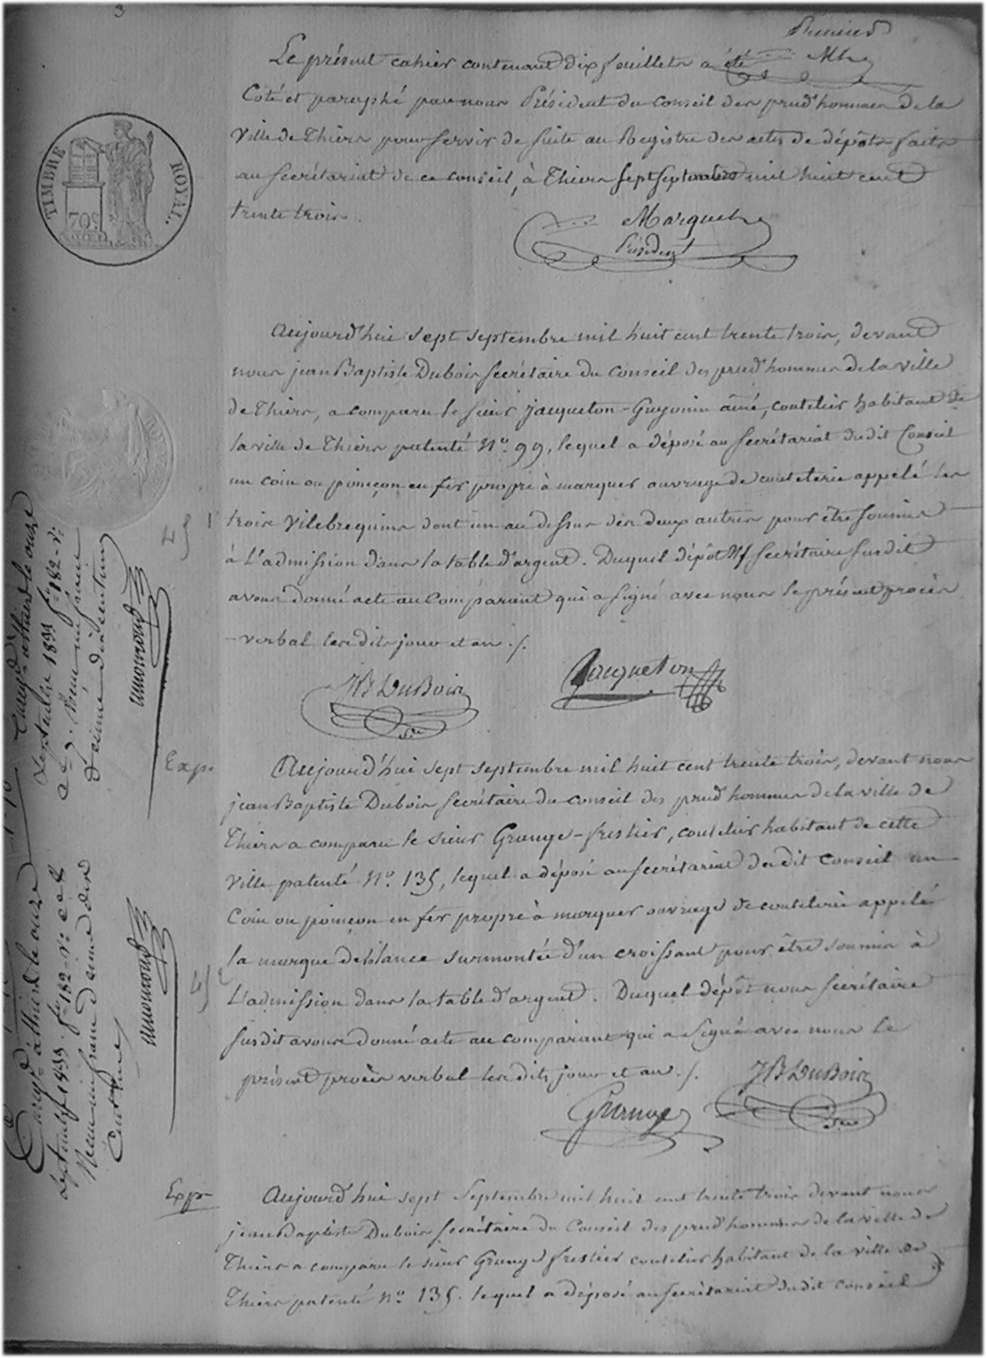 3
Premier
Le présent cahier contenant dix feuillets a été
Coté et paraphé par nous Président du conseil des prud'hommes de la
ville de Thiers pour servir de suite au Registre des actes de dépôts faits
au secrétariat de ce conseil, à Thiers sept septembre mil huit cent
trente trois.
Président
TIMBRE ROYAL.
70c
Aujourd'hui sept septembre mil huit cent trente trois, devant
nous jean Baptiste Dubois secrétaire du conseil des prud'hommes de la ville
de Thiers, a comparu le sieur Jacqueton-Guyonin ainé, coutelier habitant de
la ville de Thiers patenté No. 99, lequel a déposé au secrétariat dudit Conseil
un coin ou poinçon en fer propre à marquer ouvrage de coutelerie appelé les
trois vilebrequins dont un au dessus des deux autres pour être soumis
à L'admission dans la table d'argent. Duquel dépôt secrétaire susdit
avons donné acte au comparant qui a signé avec nous le présent procès
-verbal lesdits jour et an ./.
Jacqueton
JB DuBois
Sre
Exp.
Aujourd'hui sept septembre mil huit cent trente trois, devant nous
jean Baptiste Dubois secrétaire du conseil des prud'hommes de la ville de
Thiers a comparu le sieur Grange-frestier, coutelier habitant de cette
ville patenté No. 135, lequel a déposé au secrétariat dudit conseil un
Coin ou poinçon en fer propre à marquer ouvrage de coutelerie appelé
la marque de blance surmontée d'un croissant pour être soumis à
L'admission dans la table d'argent. Duquel dépôt nous secrétaire
susdit avons donné acte au comparant qui a signé avec nous le
présent procès verbal lesdits jour et an ./.
JB DuBois
Sre
Grange
Exp.
Aujourd'hui sept Septembre mil huit cent trente trois devant nous
jean Baptiste Dubois secrétaire du Conseil des prud'hommes de la ville de
Thiers a comparu le sieur Grange frestier coutelier habitant de la ville de
Thiers patenté No. 135. lequel a déposé au secrétariat dudit conseil